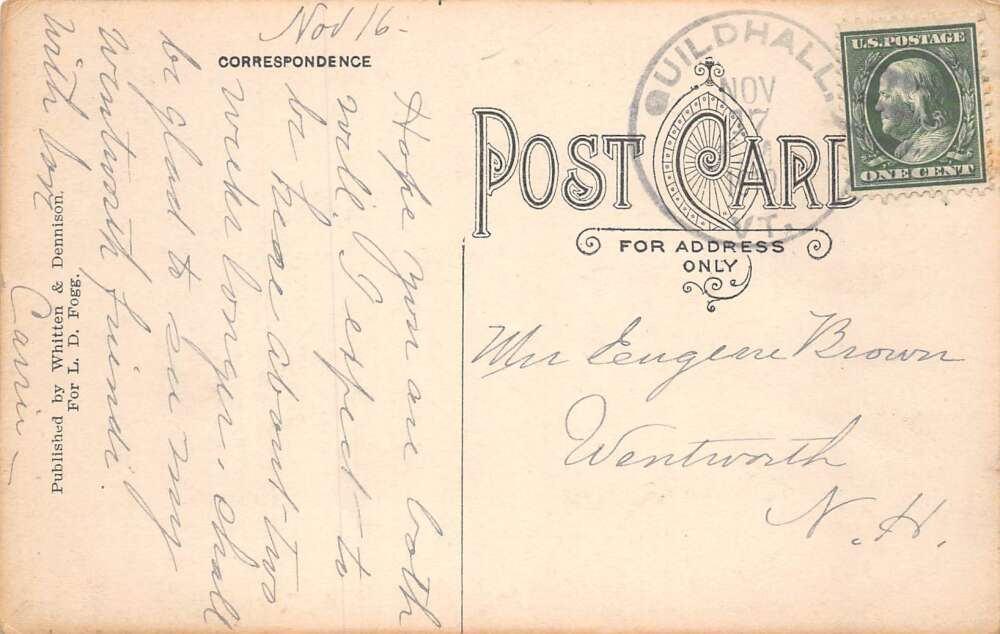 Nov 16-
CORRESPONDENCE
Hope you are both
well. I expect to
be here about two
weeks longer, shall
be glad to see my
Wentworth friends.
with love
Carrie -
Published by Whitten & Dennison,
For L. D. Fogg.
POST CARD
FOR ADDRESS
ONLY
GUILDHALL,
NOV
VT.
U.S. POSTAGE
ONE CENT
Mrs Eugene Brown
Wentworth
N.H.